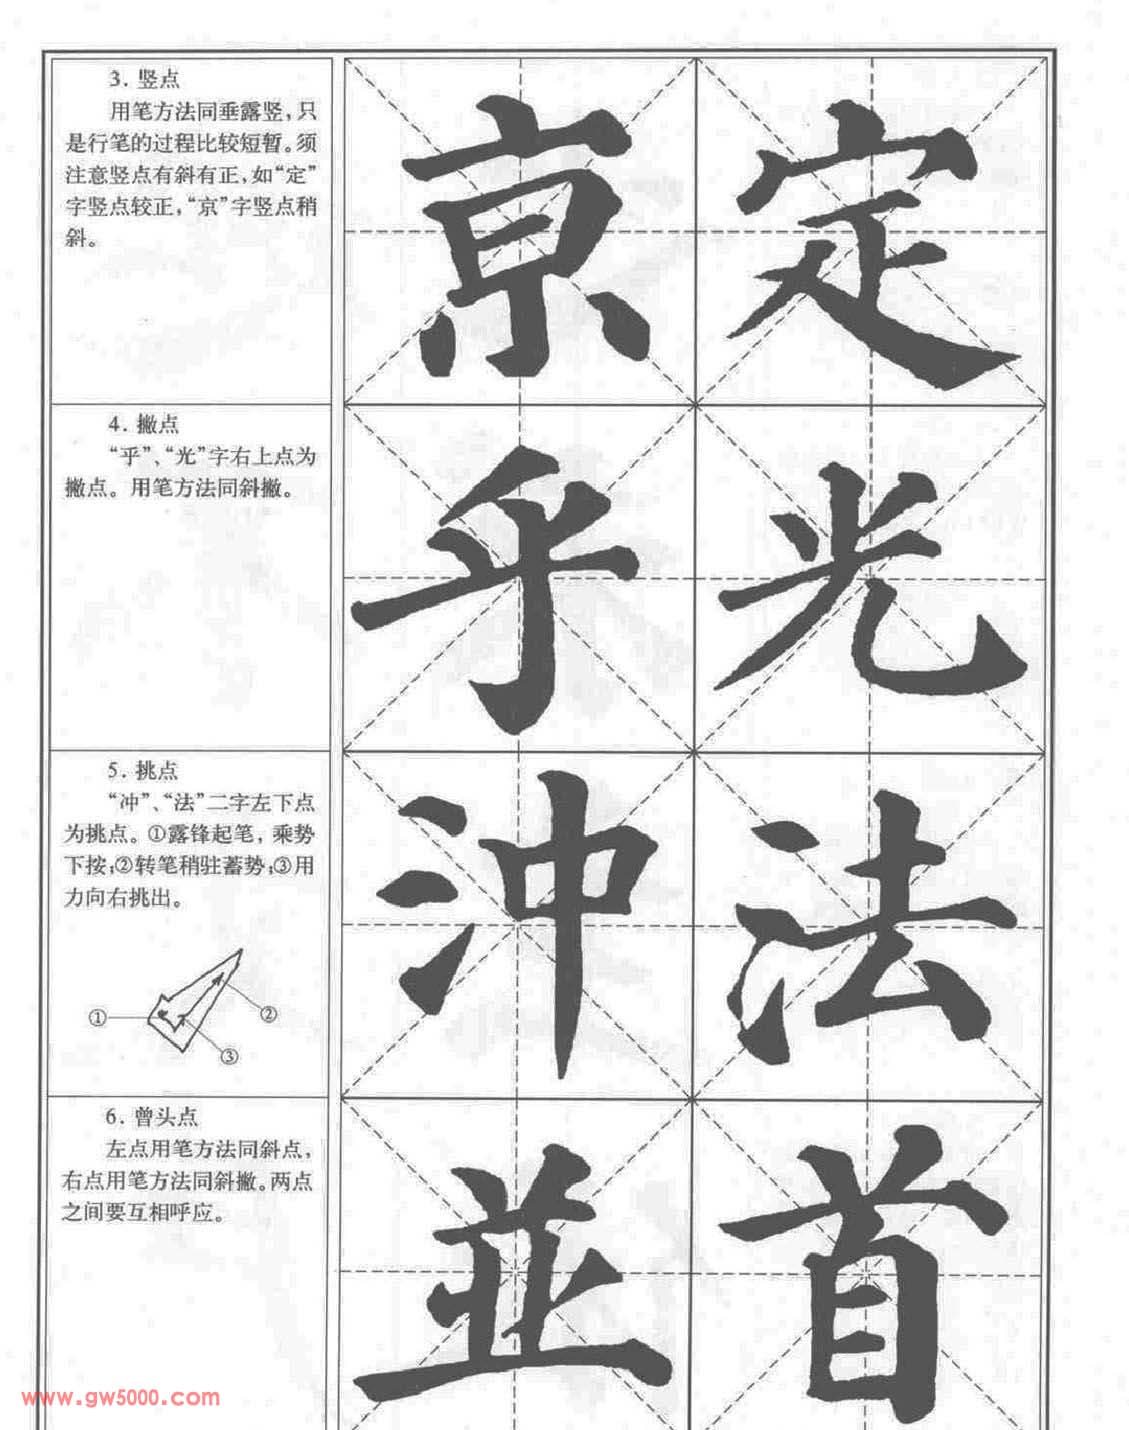 3. 竖点
用笔方法同垂露竖，只
是行笔的过程比较短暂。须
注意竖点有斜有正，如“定”
字竖点较正，“京”字竖点稍
斜。
京 定
4. 撇点
“乎”、“光”字右上点为
撇点。用笔方法同斜撇。
乎 光
5. 挑点
“冲”、“法”二字左下点
为挑点。①露锋起笔，乘势
下按；②转笔稍驻蓄势；③用
力向右挑出。
① ②
③
冲 法
6. 曾头点
左点用笔方法同斜点，
右点用笔方法同斜撇。两点
之间要互相呼应。
並 首
www.gw5000.com